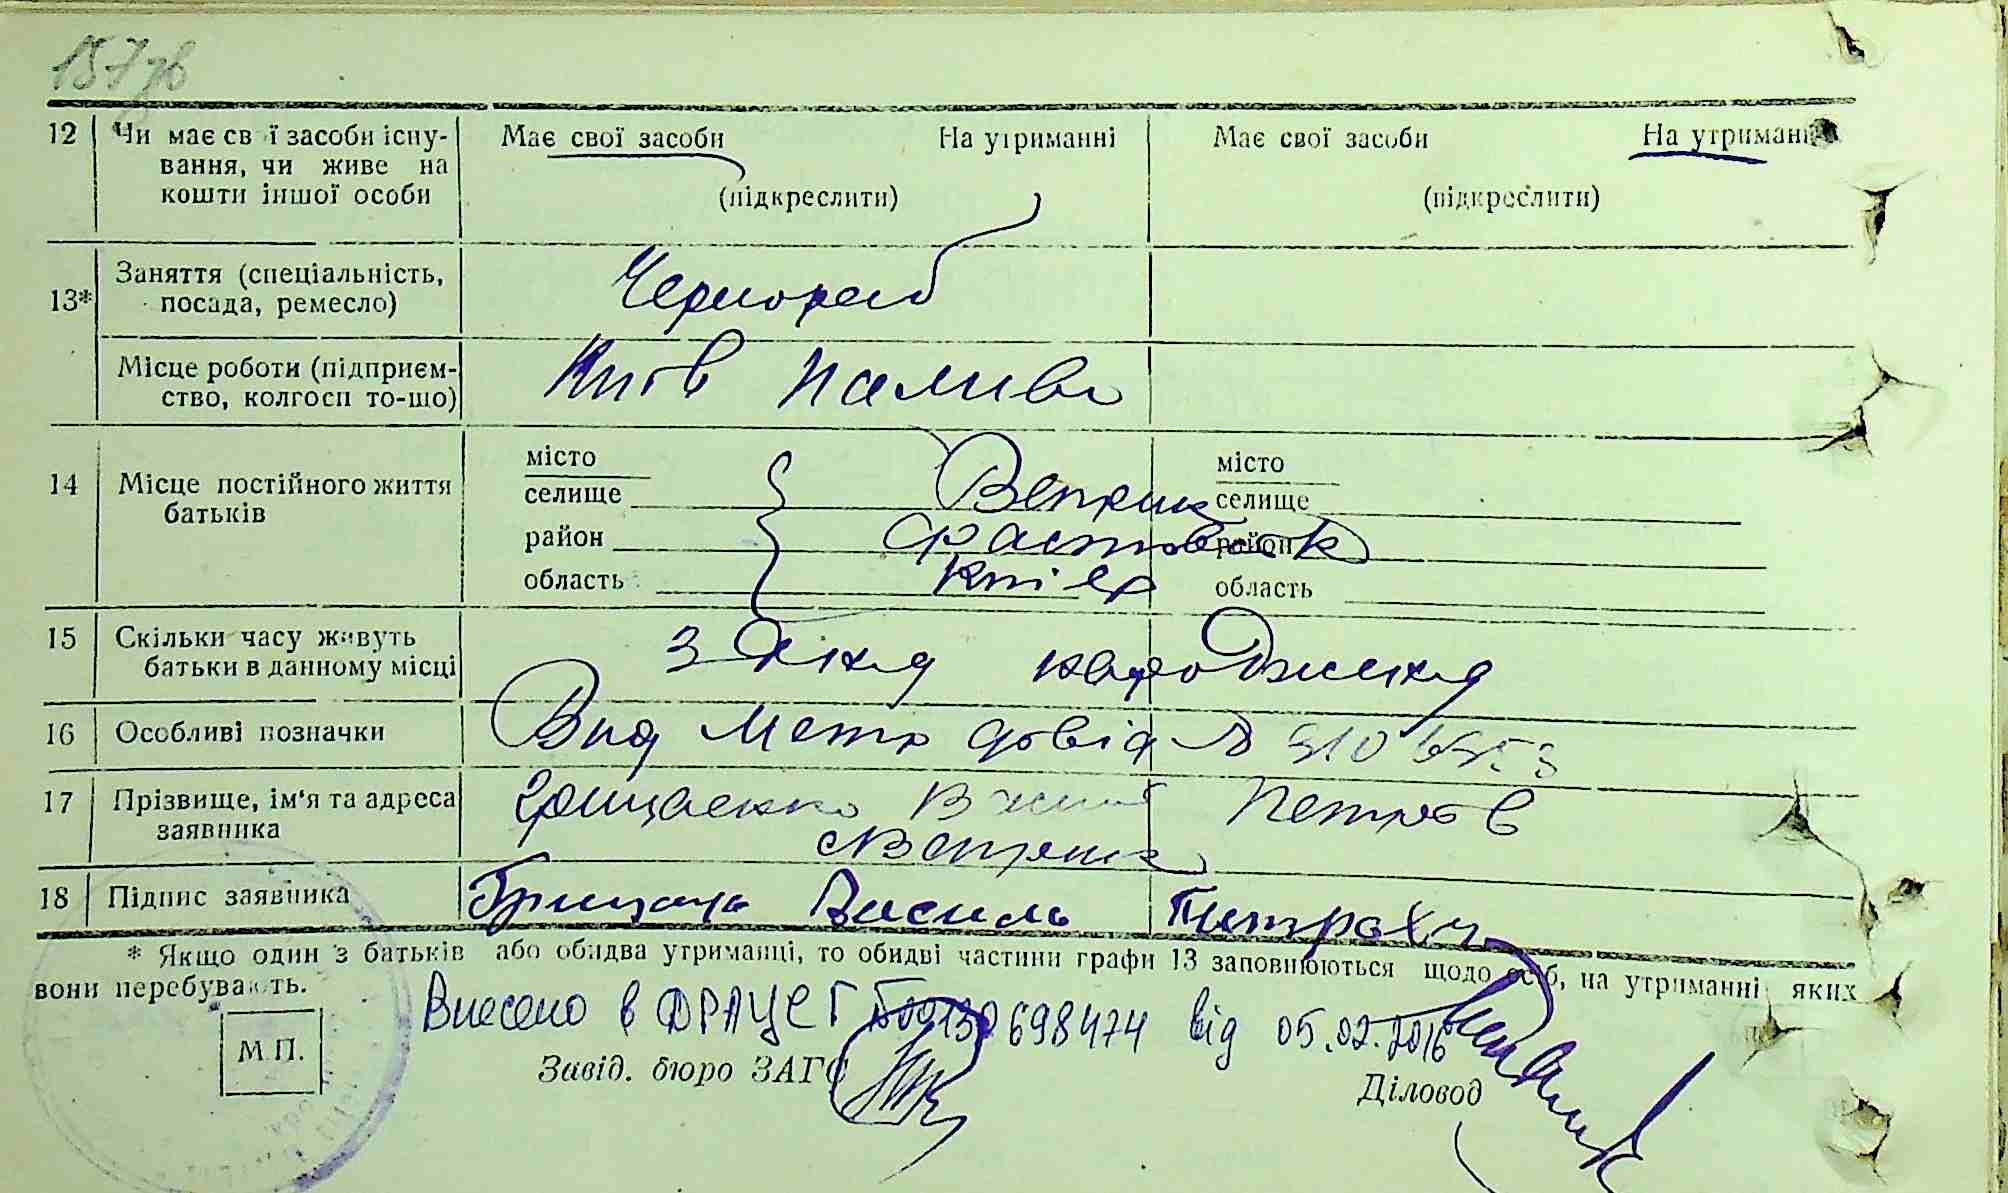 157зв
12 Чи має св ї засоби існу-
вання, чи живе на
кошти іншої особи
Має свої засоби На утриманні Має свої засоби На утриманн
(підкреслити) (підкреслити)
13* Заняття (спеціальність,
посада, ремесло)
Чернораб
Місце роботи (підприєм-
ство, колгосп то-що)
Київ Паливо
14 Місце постійного життя
батьків
місто місто
селище Веприк селище
район Фастівськ район
область область
15 Скільки часу живуть
батьки в данному місці
З дня народження
16 Особливі позначки
Вид метр довід №
17 Прізвище, ім'я та адреса
заявника
Грищенко Петров
с Веприк
18 Підпис заявника
Василь Петрович
* Якщо один з батьків або обидва утриманці, то обидві частини графи 13 заповнюються щодо осіб, на утриманні яких
вони перебувають.
Внесено в ДРАЦСГ 00130698474 від 05.02.2016
М.П.
Завід. бюро ЗАГС
Діловод